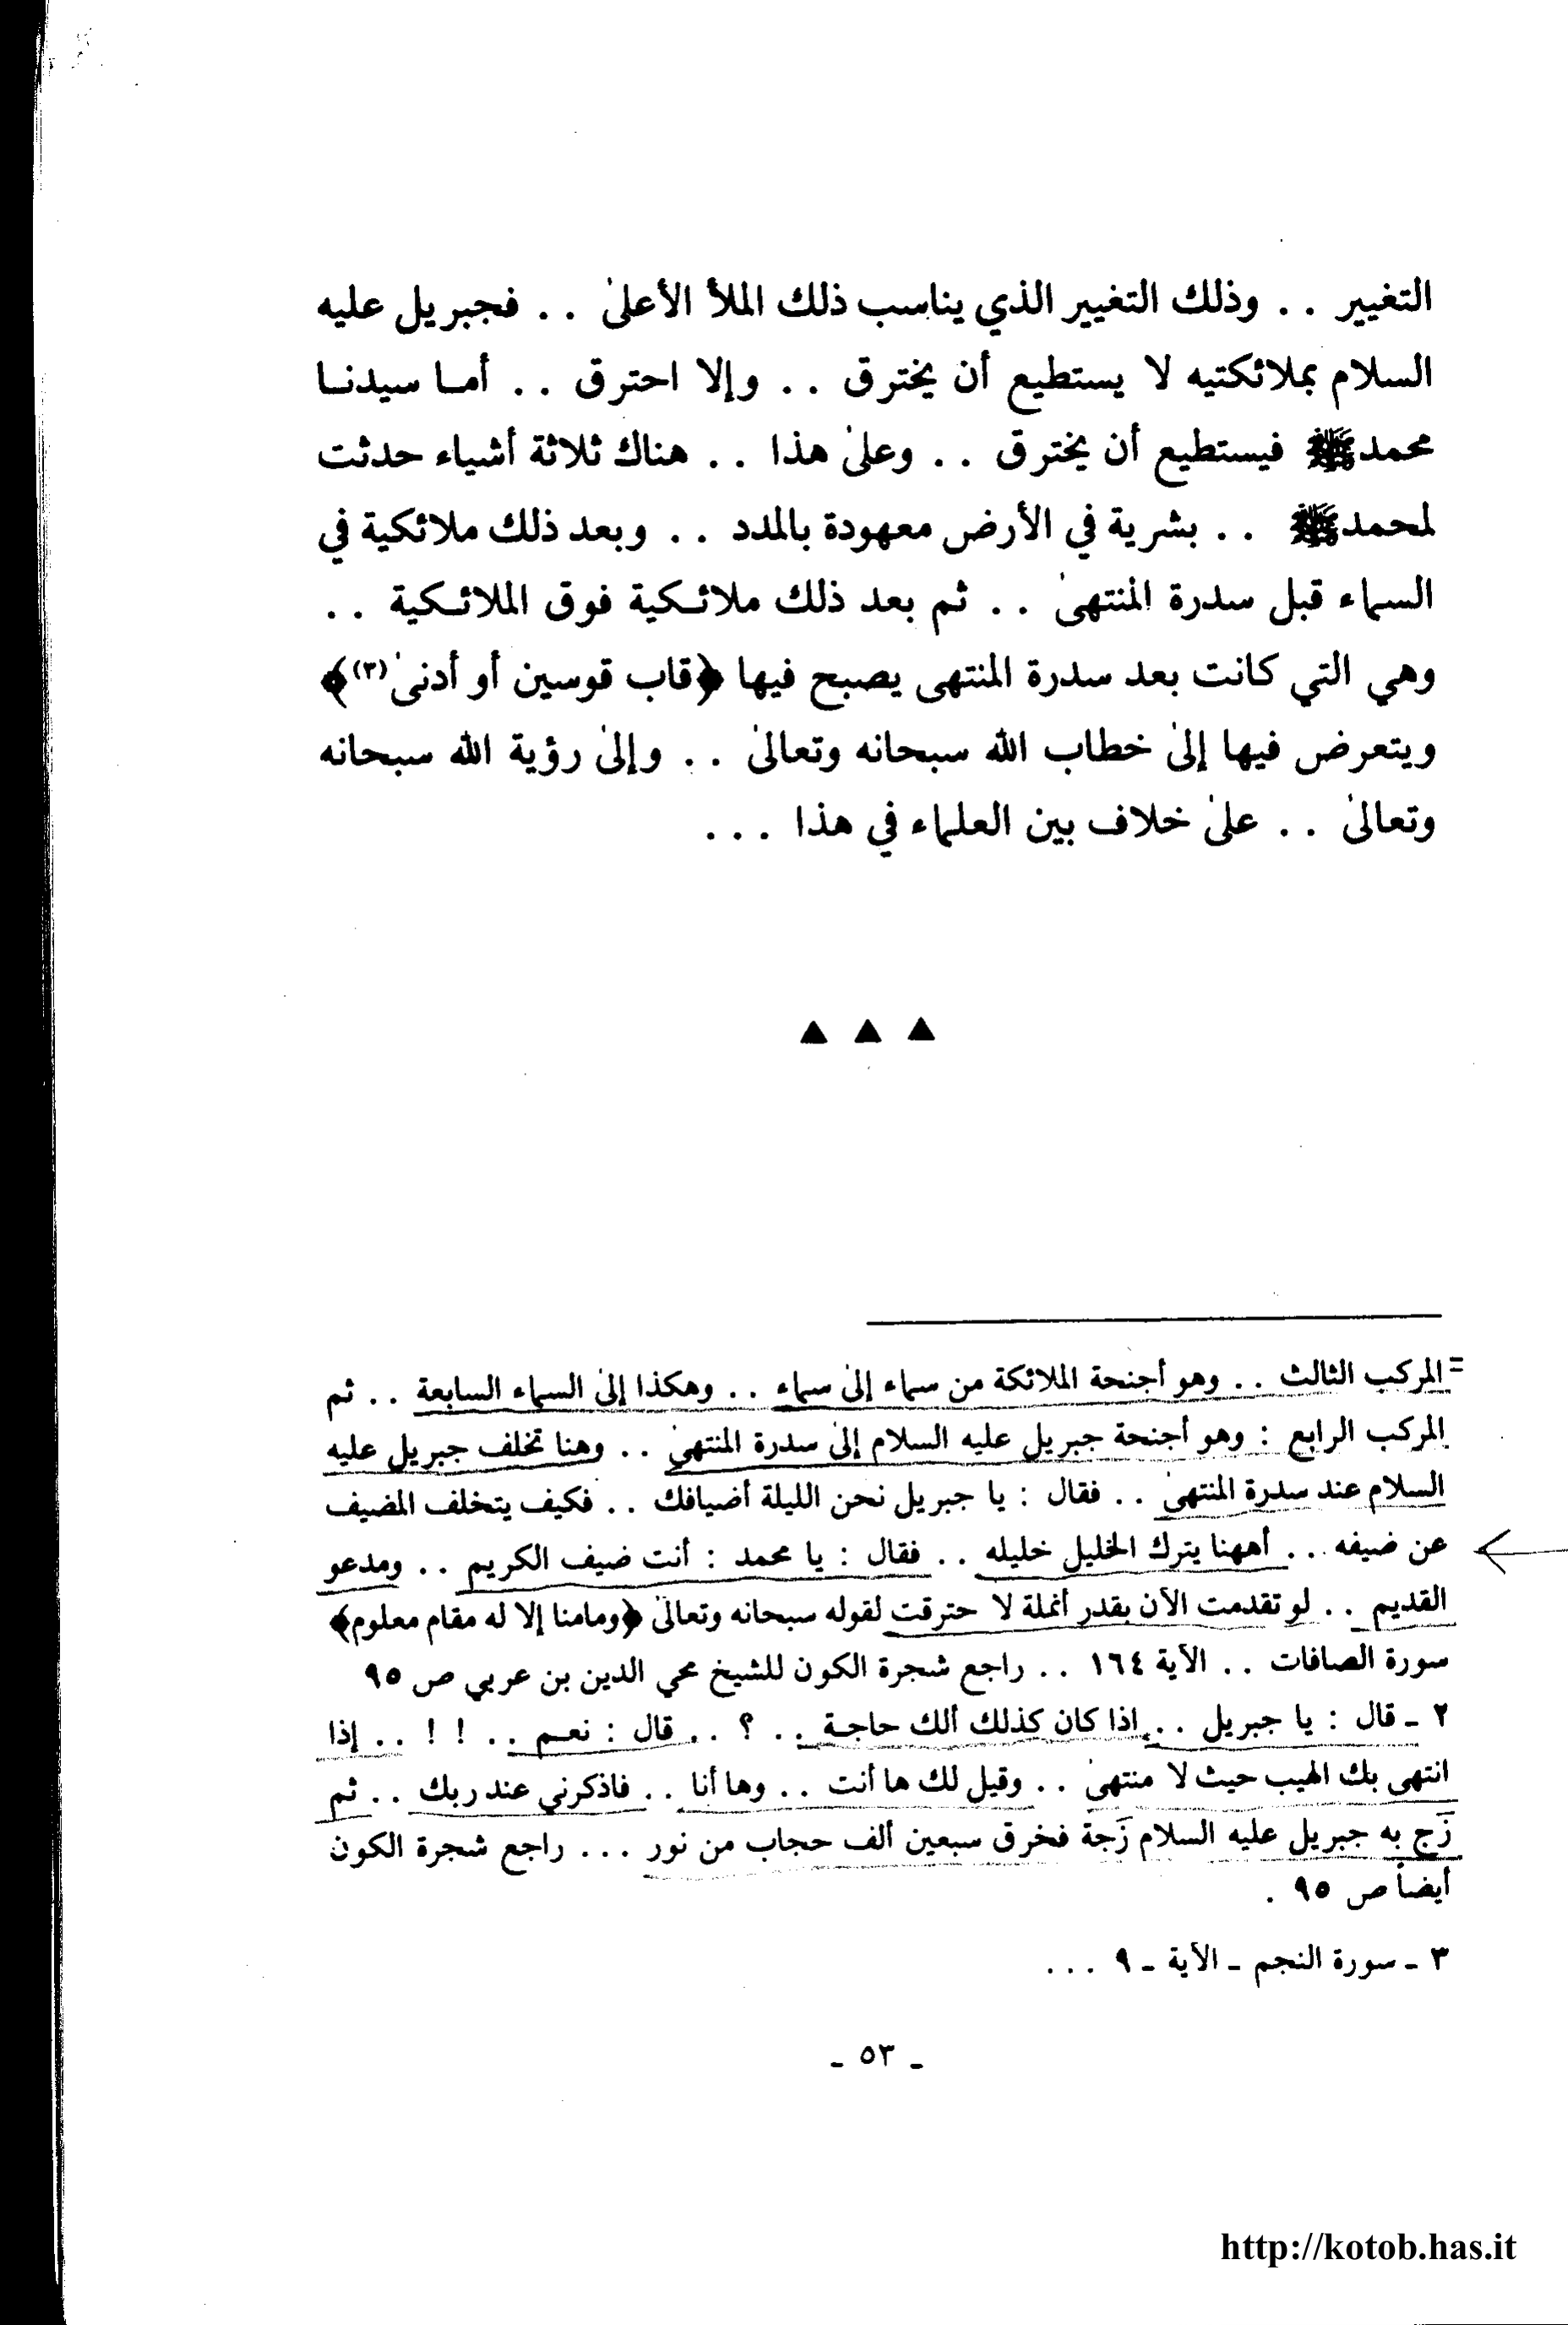 التغيير . . وذلك التغيير الذي يناسب ذلك الملأ الأعلىٰ . . فجبريل عليه
السلام بملائكتيه لا يستطيع أن يخترق . . وإلا احترق . . أمـا سيدنـا
محمدﷺ فيستطيع أن يخترق . . وعلىٰ هذا . . هناك ثلاثة أشياء حدثت
لمحمدﷺ . . بشرية في الأرض معهودة بالمدد . . وبعد ذلك ملائكية في
السماء قبل سدرة المنتهىٰ . . ثم بعد ذلك ملائـكية فوق الملائـكية . .
وهي التي كانت بعد سدرة المنتهى يصبح فيها ﴿قاب قوسين أو أدنىٰ(٣)﴾
ويتعرض فيها إلىٰ خطاب الله سبحانه وتعالىٰ . . وإلىٰ رؤية الله سبحانه
وتعالىٰ . . علىٰ خلاف بين العلماء في هذا . . .
▲ ▲ ▲
= المركب الثالث . . وهو أجنحة الملائكة من سماء إلىٰ سماء . . وهكذا إلىٰ السماء السابعة . . ثم
المركب الرابع : وهو أجنحة جبريل عليه السلام إلىٰ سدرة المنتهىٰ . . وهنا تخلف جبريل عليه
السلام عند سدرة المنتهىٰ . . فقال : يا جبريل نحن الليلة أضيافك . . فكيف يتخلف المضيف
عن ضيفه . . أههنا يترك الخليل خليله . . فقال : يا محمد : أنت ضيف الكريم . . ومدعو
القديم . . لو تقدمت الآن بقدر أنملة لا حترقت لقوله سبحانه وتعالىٰ ﴿ومامنا إلا له مقام معلوم﴾
سورة الصافات . . الآية ١٦٤ . . راجع شجرة الكون للشيخ محي الدين بن عربي ص ٩٥
٢ ـ قال : يا جبريل . . إذا كان كذلك ألك حاجـة . . ؟ . . قال : نعـم . . ! ! . . إذا
انتهى بك الهيب حيث لا منتهىٰ . . وقيل لك ها أنت . . وها أنا . . فاذكرني عند ربك . . ثم
زَج به جبريل عليه السلام زَجة فخرق سبعين ألف حجاب من نور . . . راجع شجرة الكون
أيضاً ص ٩٥ .
٣ ـ سورة النجم ـ الآية ـ ٩ . . .
ـ ٥٣ ـ
http://kotob.has.it